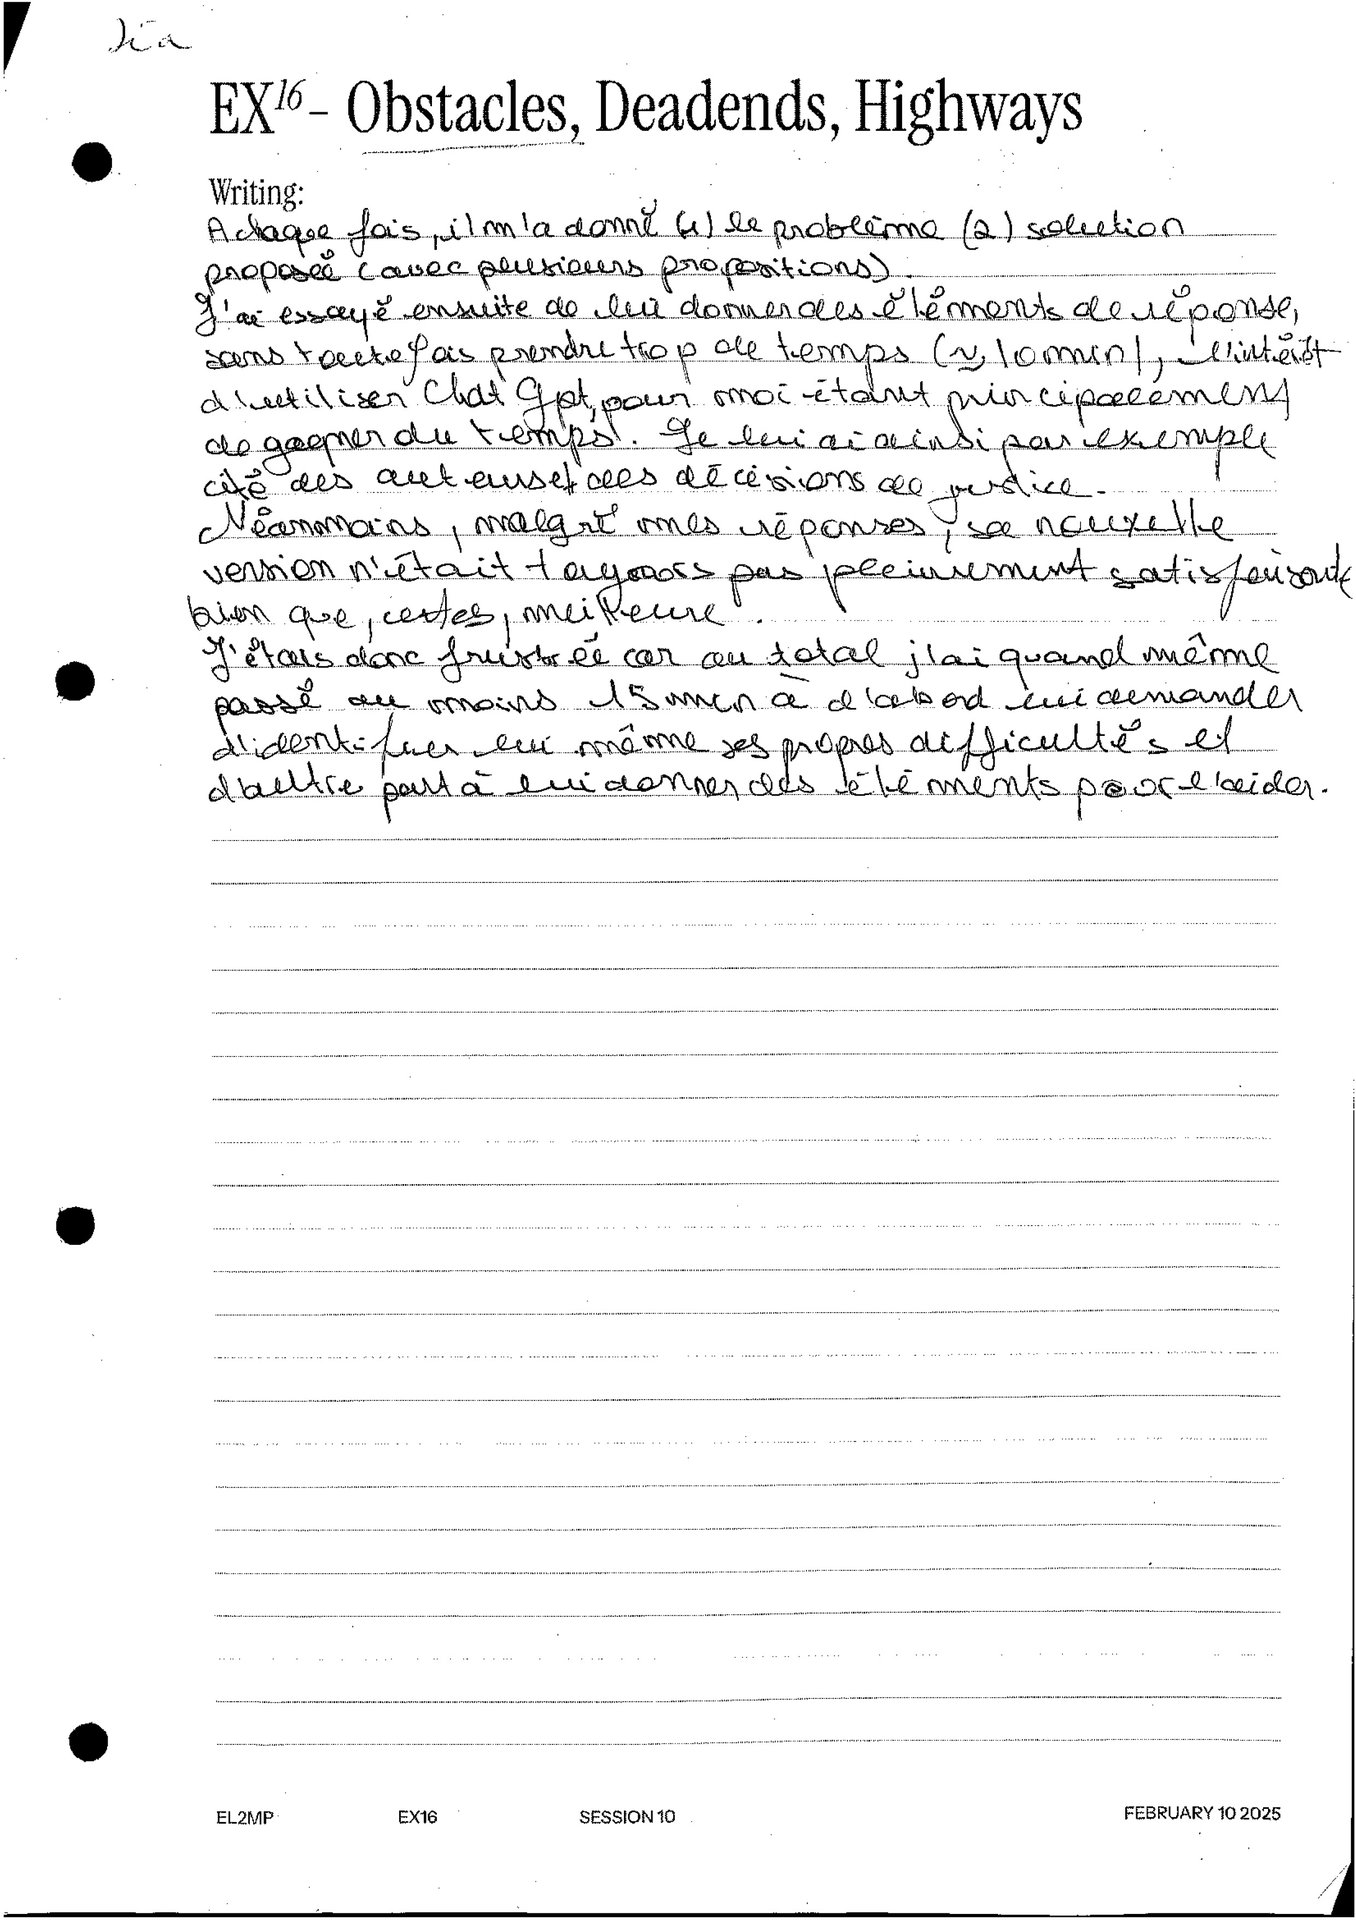 EX16 - Obstacles, Deadends, Highways
Writing:
A chaque fois, il m'a donné (1) le problème (2) solution
proposée (avec plusieurs propositions).
J'ai essayé ensuite de lui donner des éléments de réponse,
sans toutefois prendre trop de temps (≈ 10 min), l'intérêt
d'utiliser Chat Gpt, pour moi étant principalement
de gagner du temps. Je lui ai ainsi par exemple
cité des auteurs et des décisions de justice.
Néanmoins, malgré mes réponses, sa nouvelle
version n'était toujours pas pleinement satisfaisante
bien que, certes, meilleure.
J'étais donc frustrée car au total j'ai quand même
passé au moins 15 min à d'abord lui demander
d'identifier lui même ses propres difficultés et
d'autre part à lui donner des éléments pour l'aider.
EL2MP EX16 SESSION 10 FEBRUARY 10 2025